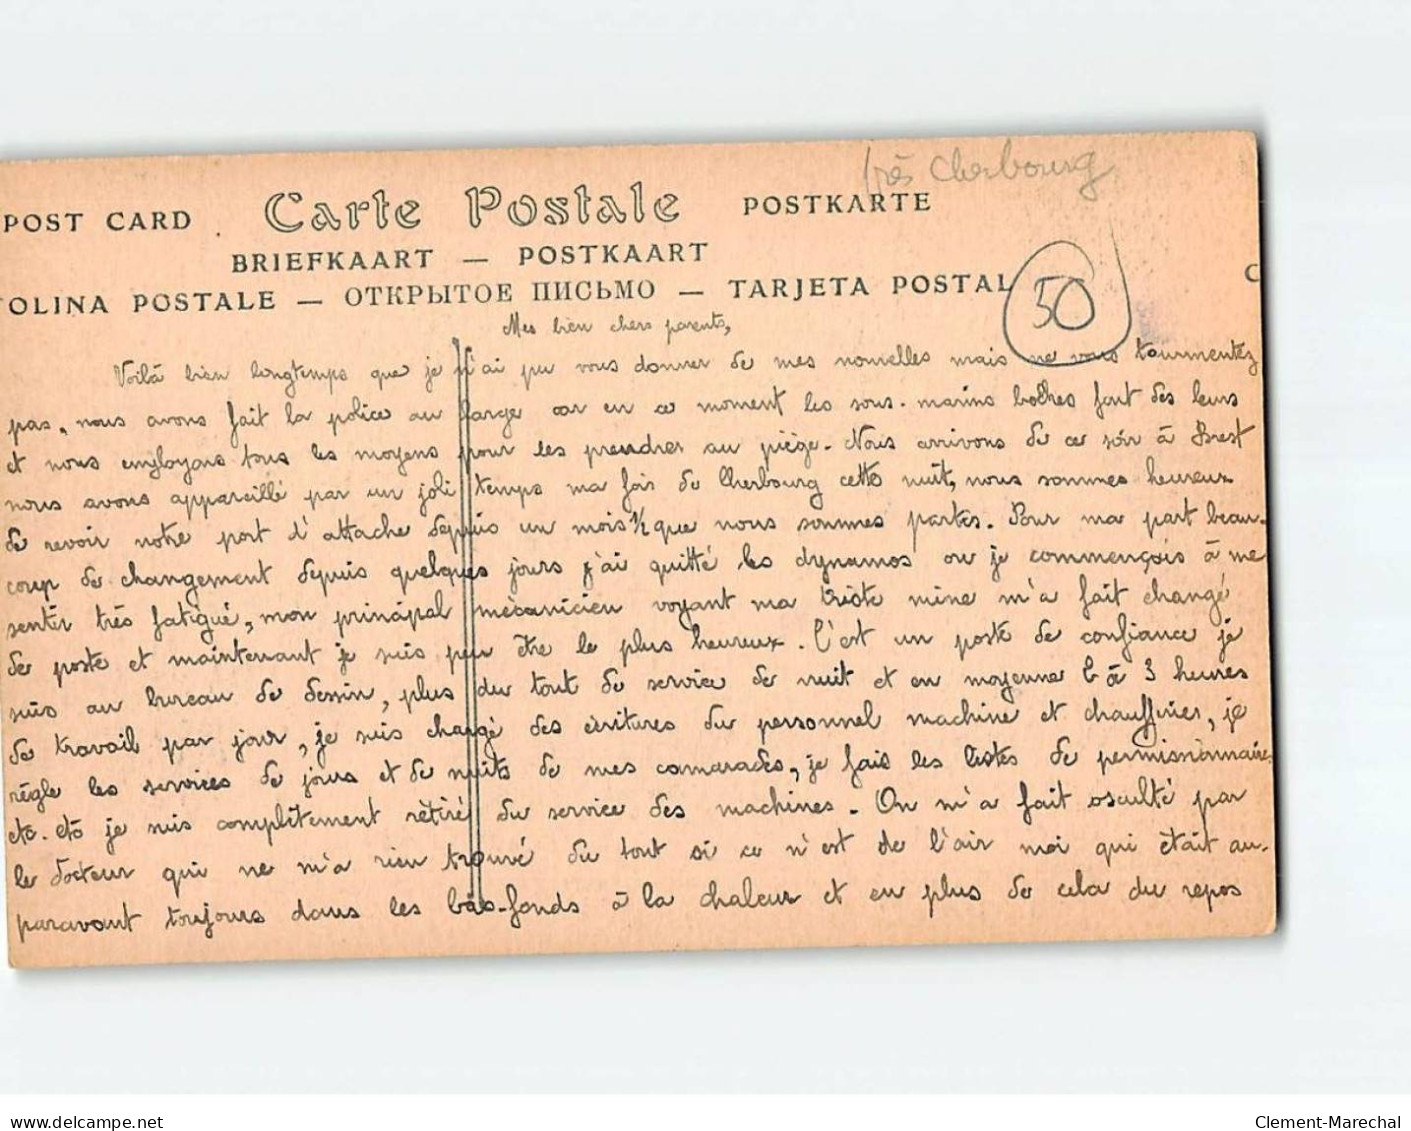 près Cherbourg
POST CARD Carte Postale POSTKARTE
BRIEFKAART — POSTKAART
OLINA POSTALE — ОТКРЫТОЕ ПИСЬМО — TARJETA POSTAL C
50
Mes bien chers parents,
Voilà bien longtemps que je n'ai pu vous donner de mes nouvelles mais ne vous tourmentez
pas, nous avons fait la police au large car en ce moment les sous-marins boches font des leurs
et nous employons tous les moyens pour les prendre au piège. Nous arrivons de ce soir à Brest
nous avons appareillé par un joli temps ma foi de Cherbourg cette nuit, nous sommes heureux
de revoir notre port d'attache depuis un mois ½ que nous sommes partis. Pour ma part beau-
coup de changement depuis quelques jours j'ai quitté les dynamos ou je commençais à me
sentir très fatigué, mon principal mécanicien voyant ma triste mine m'a fait changé
de poste et maintenant je suis peu être le plus heureux. C'est un poste de confiance je
suis au bureau de dessin, plus du tout de service de nuit et en moyenne 2 à 3 heures
de travail par jour, je suis chargé des écritures du personnel machine et chauffries, je
règle les services de jours et de nuits de mes camarades, je fais les listes de permissionnaires
etc. etc je suis complètement rètiré du service des machines. On m'a fait osculté par
le docteur qui ne m'a rien trouvé du tout si ce n'est de l'air moi qui était au-
paravant toujours dans les bas-fonds à la chaleur et en plus de cela du repos
delcampe.net
Clement-Marechal